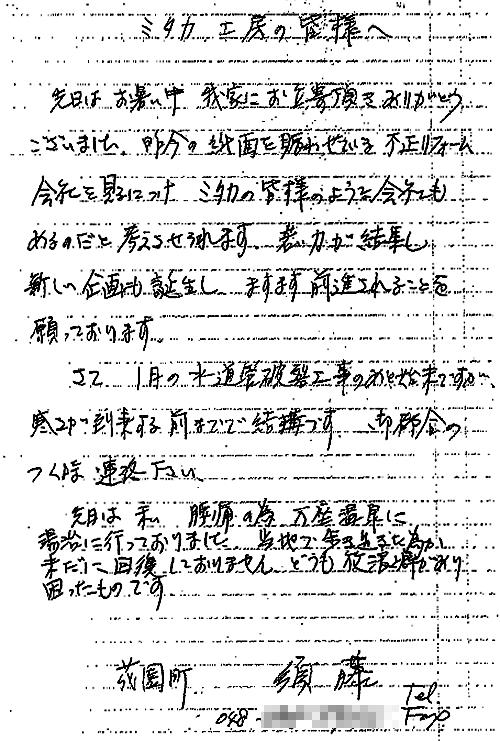 ミタカ工房の皆様へ
先日は お暑い中 我家にお立寄頂きありがとう
ございました。昨今の紙面を賑わせている 不正リフォーム
会社を見るにつけ ミタカの皆様のような会社も
あるのだと考えさせられます。若い力が結集し
新しい企画も誕生し、ますます前進されることを
願っております。
さて、1月の水道管破裂工事のあと始末ですが、
寒波が到来する前までで結構です。御都合の
つく時 連絡下さい、
先日は 私 腰痛の為 万座温泉に
湯治に行っておりました 当地で歩き
未だに回復しておりません どうも放浪癖があり
困ったものです
花園町 須藤
048- Tel Fax